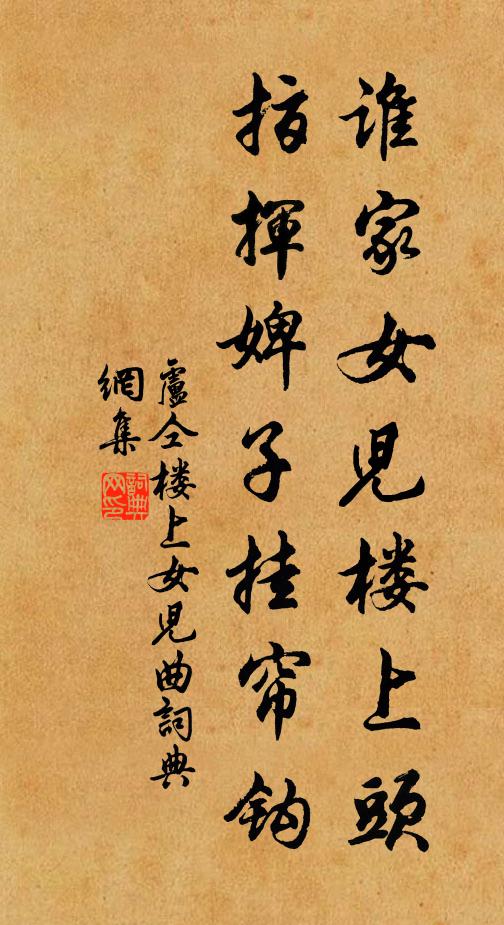 谁家女児楼上頭
指揮婢子挂帘鈎
盧仝楼上女児曲詞典
網集
詞典
网印